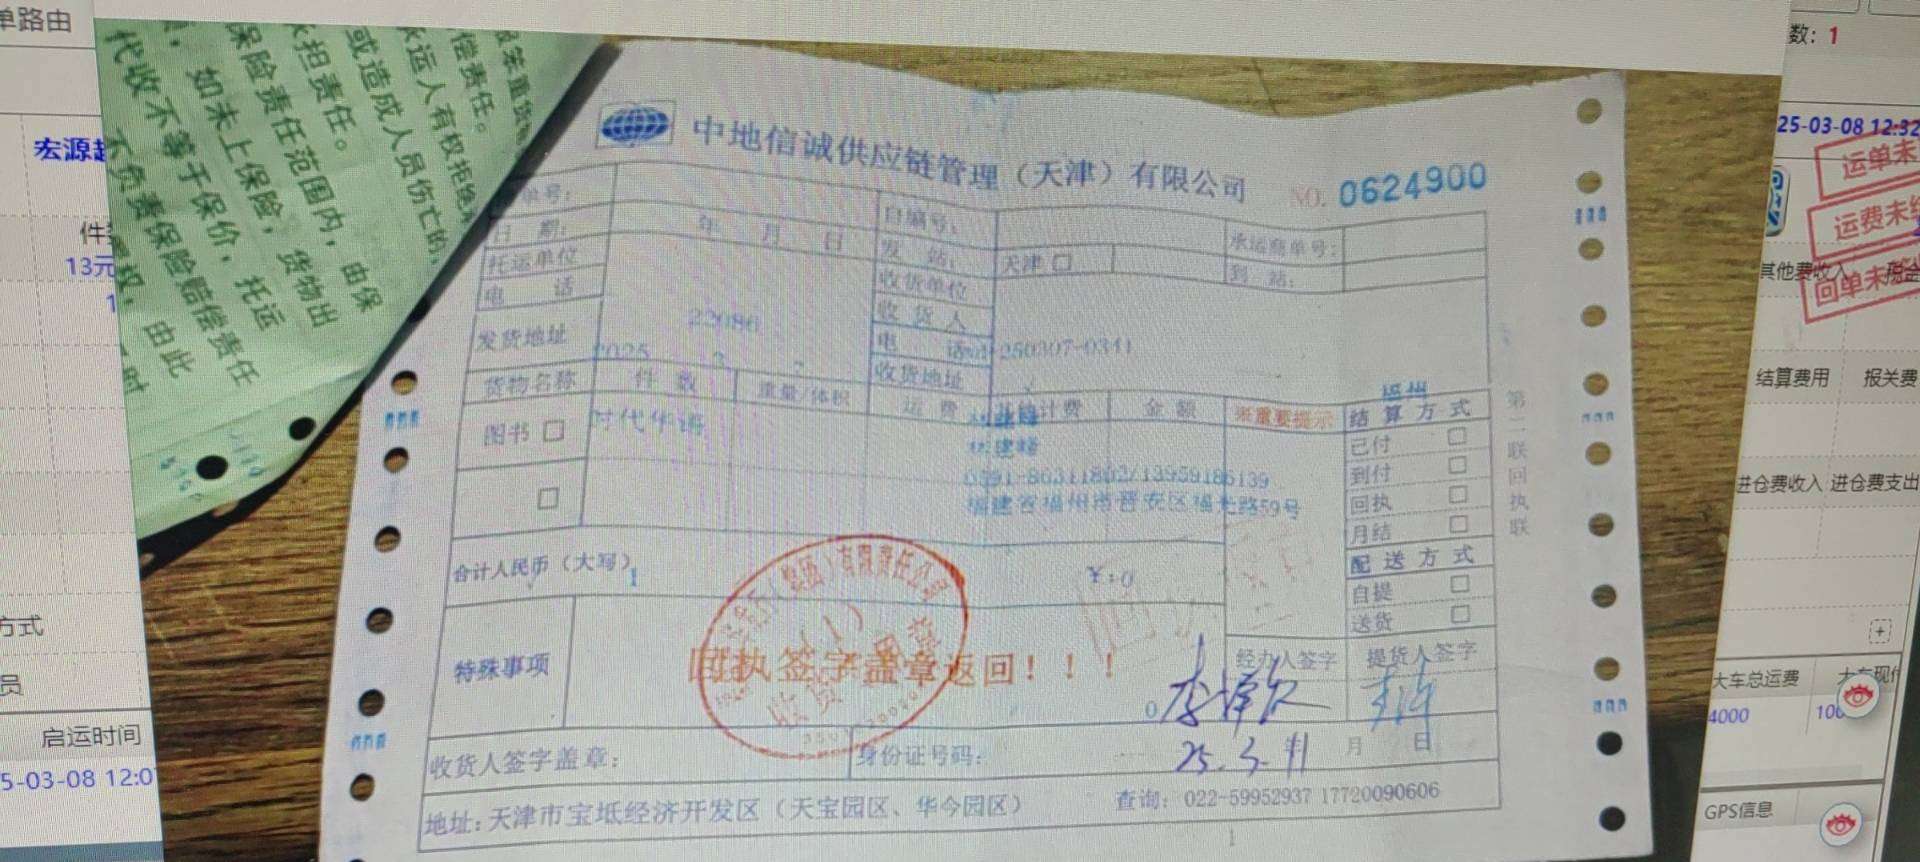 单路由
数：1
25-03-08 12:32
宏源
13元
偿责任。
承运人有权拒绝
或造成人员伤亡的,
承担责任。
保险责任范围内，由保
，如未上保险，货物出
代收不等于保价，托运
不负责保险赔偿责任
由此
中地信诚供应链管理（天津）有限公司
NO. 0624900
单号：
自编号：
承运商单号：
日 期：
年 月 日
发 站：
天津
到 站：
托运单位
收货单位
电 话
收 货 人
发货地址
22086
电 话
250307-0341
2025 3 7
收货地址
福州
货物名称
件 数
重量/体积
运 费
计费
金 额
※重要提示
结 算 方 式
图书
时代华语
林建峰
0591-86311802/13959186139
福建省福州市晋安区福光路59号
已付
到付
回执
月结
配 送 方 式
自提
送货
第一联回执联
合计人民币（大写）
¥:0
特殊事项
回执签字盖章返回！！！
（集团）有限责任公司
收货
经办人签字
提货人签字
0
收货人签字盖章：
身份证号码：
25.3.11
年 月 日
地址：天津市宝坻经济开发区（天宝园区、华今园区）
查询：022-59952937 17720090606
1
运单未
运费未
回单未
其他费收入
税金
结算费用
报关费
进仓费收入
进仓费支出
大车总运费
大车现付
4000
100
GPS信息
方式
员
启运时间
5-03-08 12:0